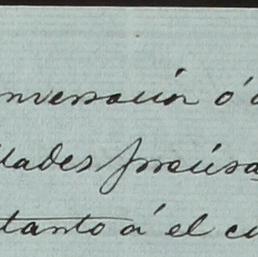 nversación ó
lades precisa
tanto á el cu